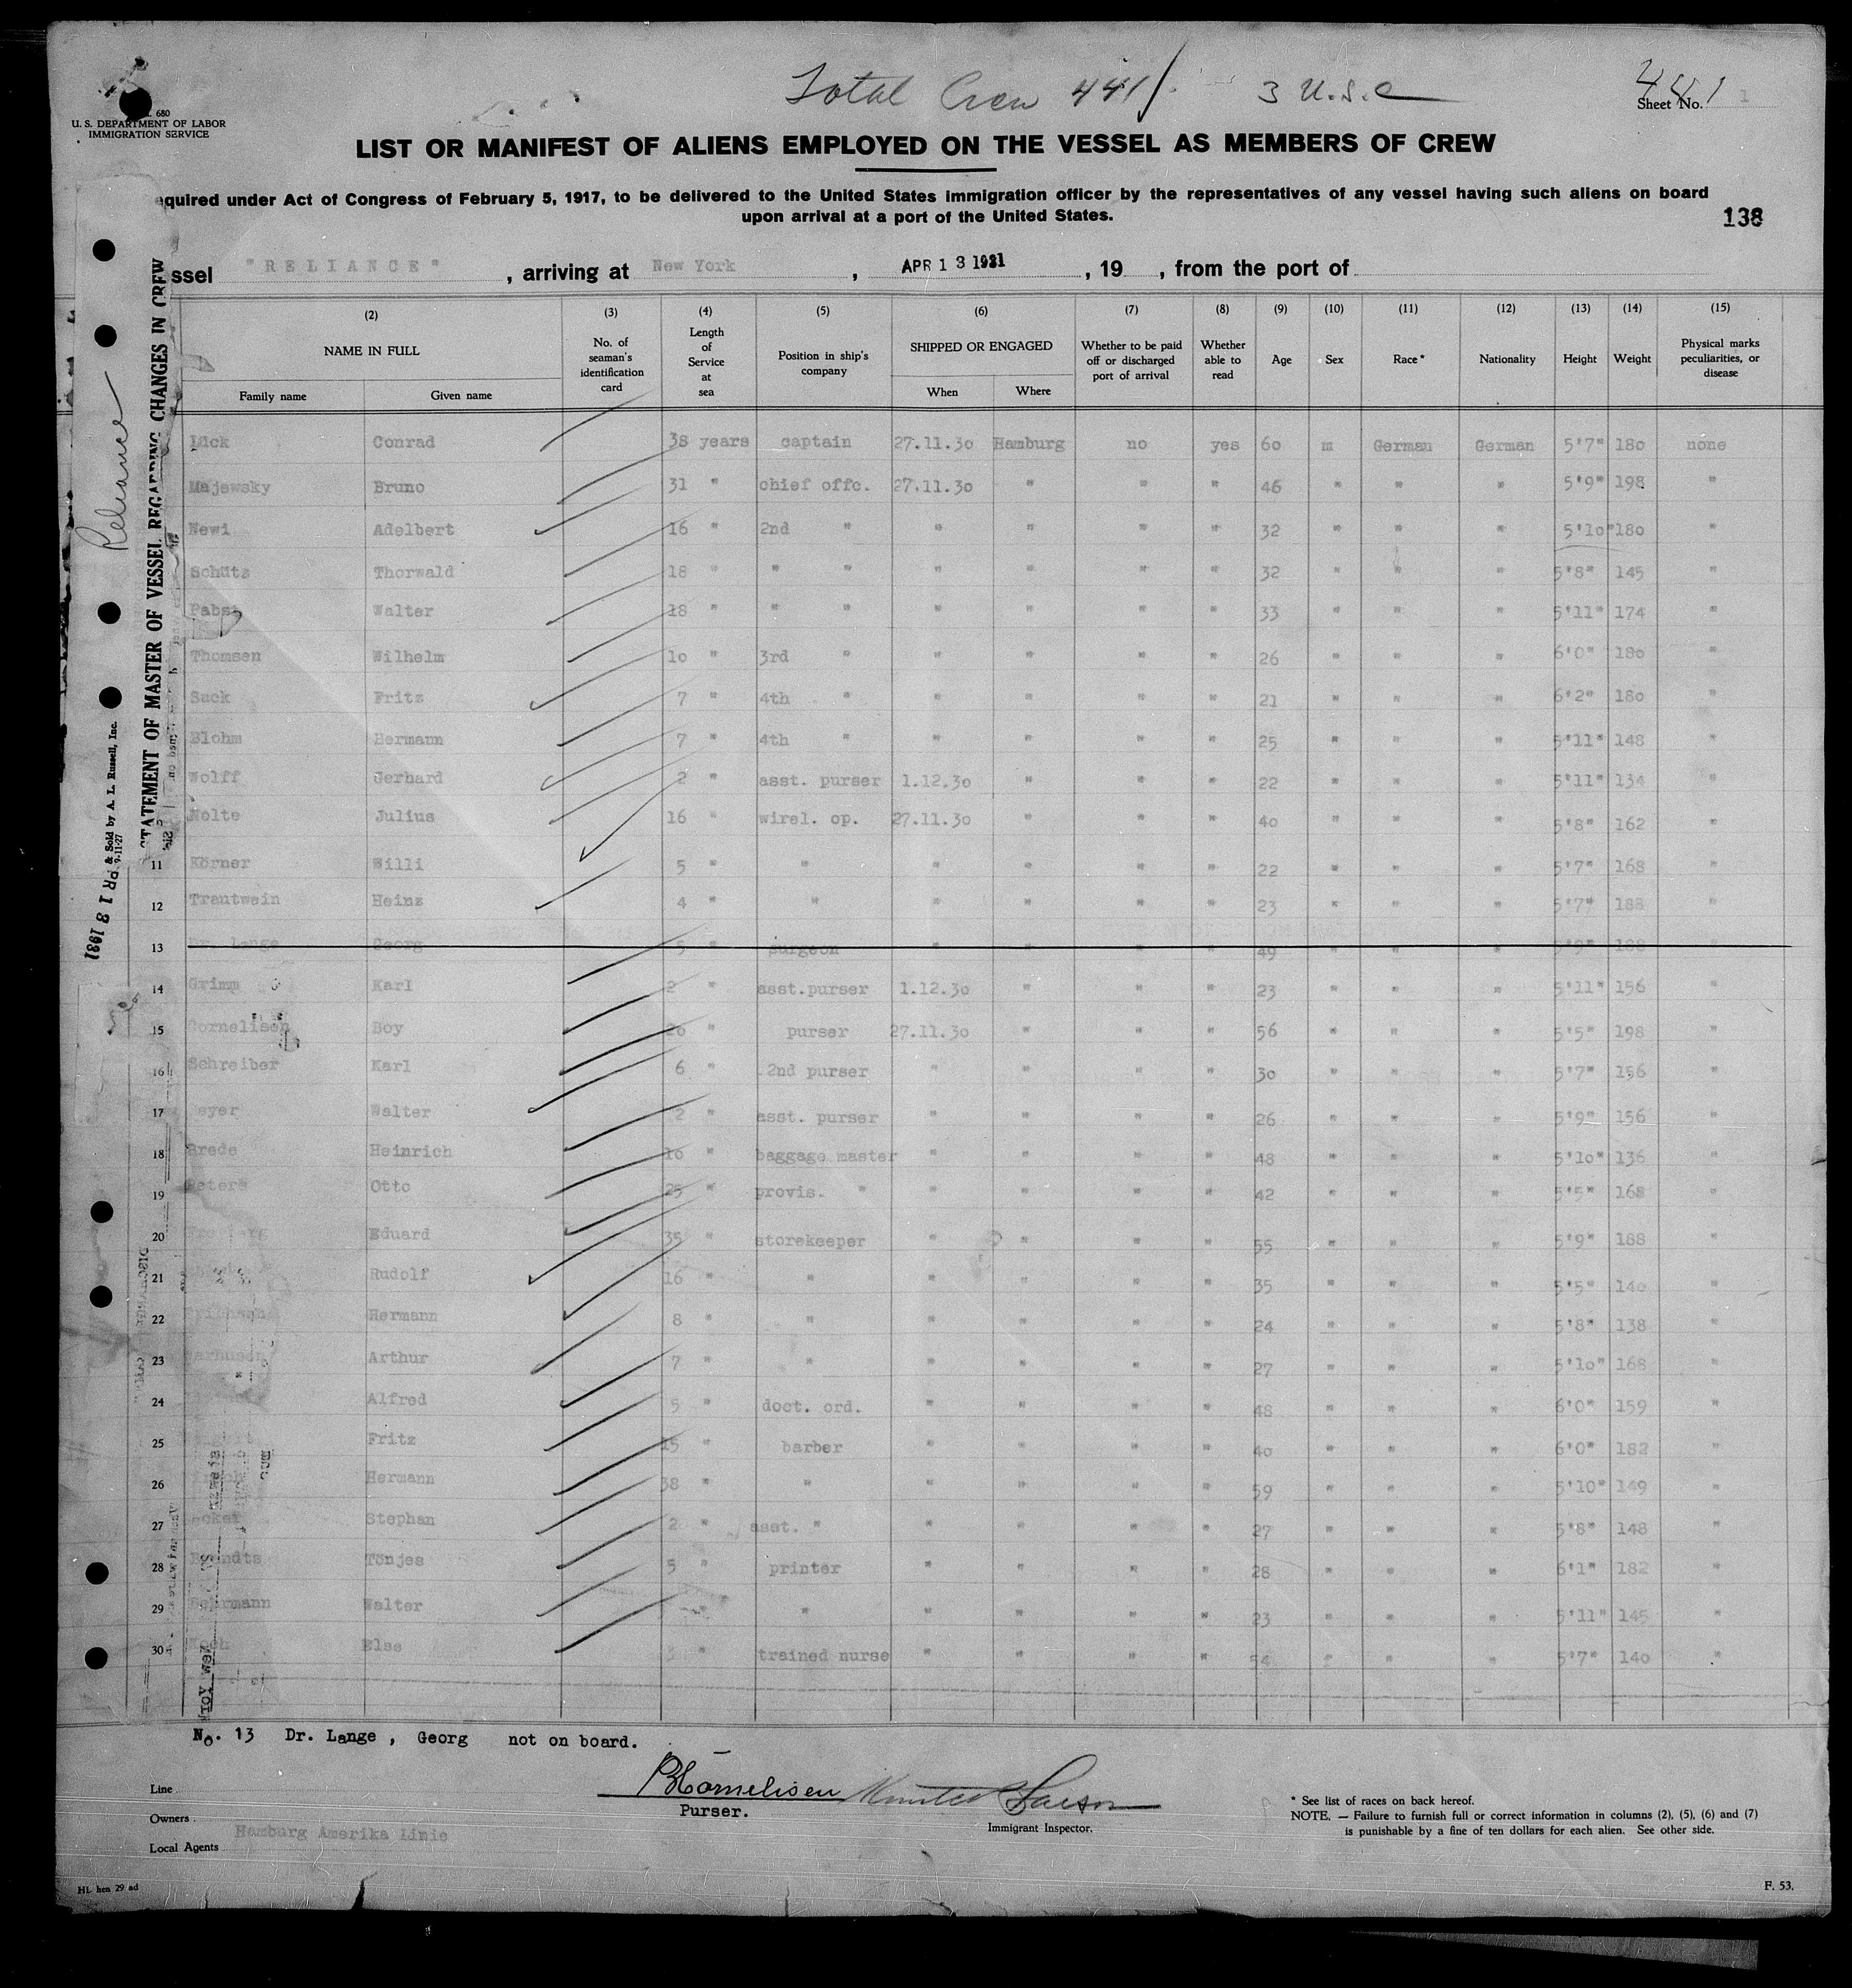 Total Crew 441 3 U.S.C
441
680
U. S. DEPARTMENT OF LABOR
IMMIGRATION SERVICE
Sheet No. 1
LIST OR MANIFEST OF ALIENS EMPLOYED ON THE VESSEL AS MEMBERS OF CREW
equired under Act of Congress of February 5, 1917, to be delivered to the United States immigration officer by the representatives of any vessel having such aliens on board
upon arrival at a port of the United States.
138
ssel "RELIANCE" , arriving at New York , APR 13 1931 , 19 , from the port of
(2) (3) (4) (5) (6) (7) (8) (9) (10) (11) (12) (13) (14) (15)
NAME IN FULL No. of seaman's identification card Length of Service at sea Position in ship's company SHIPPED OR ENGAGED Whether to be paid off or discharged port of arrival Whether able to read Age Sex Race* Nationality Height Weight Physical marks peculiarities, or disease
Family name Given name When Where
Conrad 38 years captain 27.11.30 Hamburg no yes 60 m German German 5'7" 180 none
Majewsky Bruno 31 " chief offc. 27.11.30 " " " 46 " " " 5'9" 198 "
Newi Adelbert 16 " 2nd " " " " " 32 " " " 5'10" 180 "
Schütz Thorwald 18 " " " " " " " 32 " " " 5'8" 145 "
Pabst Walter 18 " " " " " " " 33 " " " 5'11" 174 "
Thomsen Wilhelm 10 " 3rd " " " " " 26 " " " 6'0" 180 "
Sack Fritz 7 " 4th " " " " " 21 " " " 6'2" 180 "
Blohm Hermann 7 " 4th " " " " " 25 " " " 5'11" 148 "
Wolff Gerhard 2 " asst. purser 1.12.30 " " " 22 " " " 5'11" 134 "
Nolte Julius 16 " wirel. op. 27.11.30 " " " 40 " " " 5'8" 162 "
11 Körner Willi 5 " " " " " " 22 " " " 5'7" 168 "
12 Trautwein Heinz 4 " " " " " " 23 " " " 5'7" 188 "
13 Dr. Lange Georg 5 " surgeon " " " " 49 " " " 5'9" 188 "
14 Grimm Karl 2 " asst.purser 1.12.30 " " " 23 " " " 5'11" 156 "
15 Cornelisen Boy 26 " purser 27.11.30 " " " 56 " " " 5'5" 198 "
16 Schreiber Karl 6 " 2nd purser " " " " 30 " " " 5'7" 156 "
17 eyer Walter 2 " asst. purser " " " " 26 " " " 5'9" 156 "
18 Brede Heinrich 10 " baggage master " " " " 48 " " " 5'10" 136 "
19 Peters Otto 25 " provis. " " " " " 42 " " " 5'5" 168 "
20 Eduard 35 " storekeeper " " " " 55 " " " 5'9" 188 "
21 Rudolf 16 " " " " " " 35 " " " 5'5" 140 "
22 Hermann 8 " " " " " " 24 " " " 5'8" 138 "
23 Arthur 7 " " " " " " 27 " " " 5'10" 168 "
24 Alfred 5 " doct. ord. " " " " 48 " " " 6'0" 159 "
25 Fritz 15 " barber " " " " 40 " " " 6'0" 182 "
26 Hermann 38 " " " " " " 59 " " " 5'10" 149 "
27 Stephan 2 " asst. " " " " " 27 " " " 5'8" 148 "
28 Tönjes 5 " printer " " " " 28 " " " 6'1" 182 "
29 Walter " " " " " " 23 " " " 5'11" 145 "
30 Else " trained nurse " " " " 54 " " " 5'7" 140 "
No. 13 Dr. Lange , Georg not on board.
Line
BCornelisen
Purser.
Immigrant Inspector.
Owners
Hamburg Amerika Linie
Local Agents
* See list of races on back hereof.
NOTE. — Failure to furnish full or correct information in columns (2), (5), (6) and (7)
is punishable by a fine of ten dollars for each alien. See other side.
HL hen 29 ad
F. 53.
Reliance
STATEMENT OF MASTER OF VESSEL REGARDING CHANGES IN CREW
& Sold by A. L. Russell, Inc.
9-11-27
PR 13 1931
New York